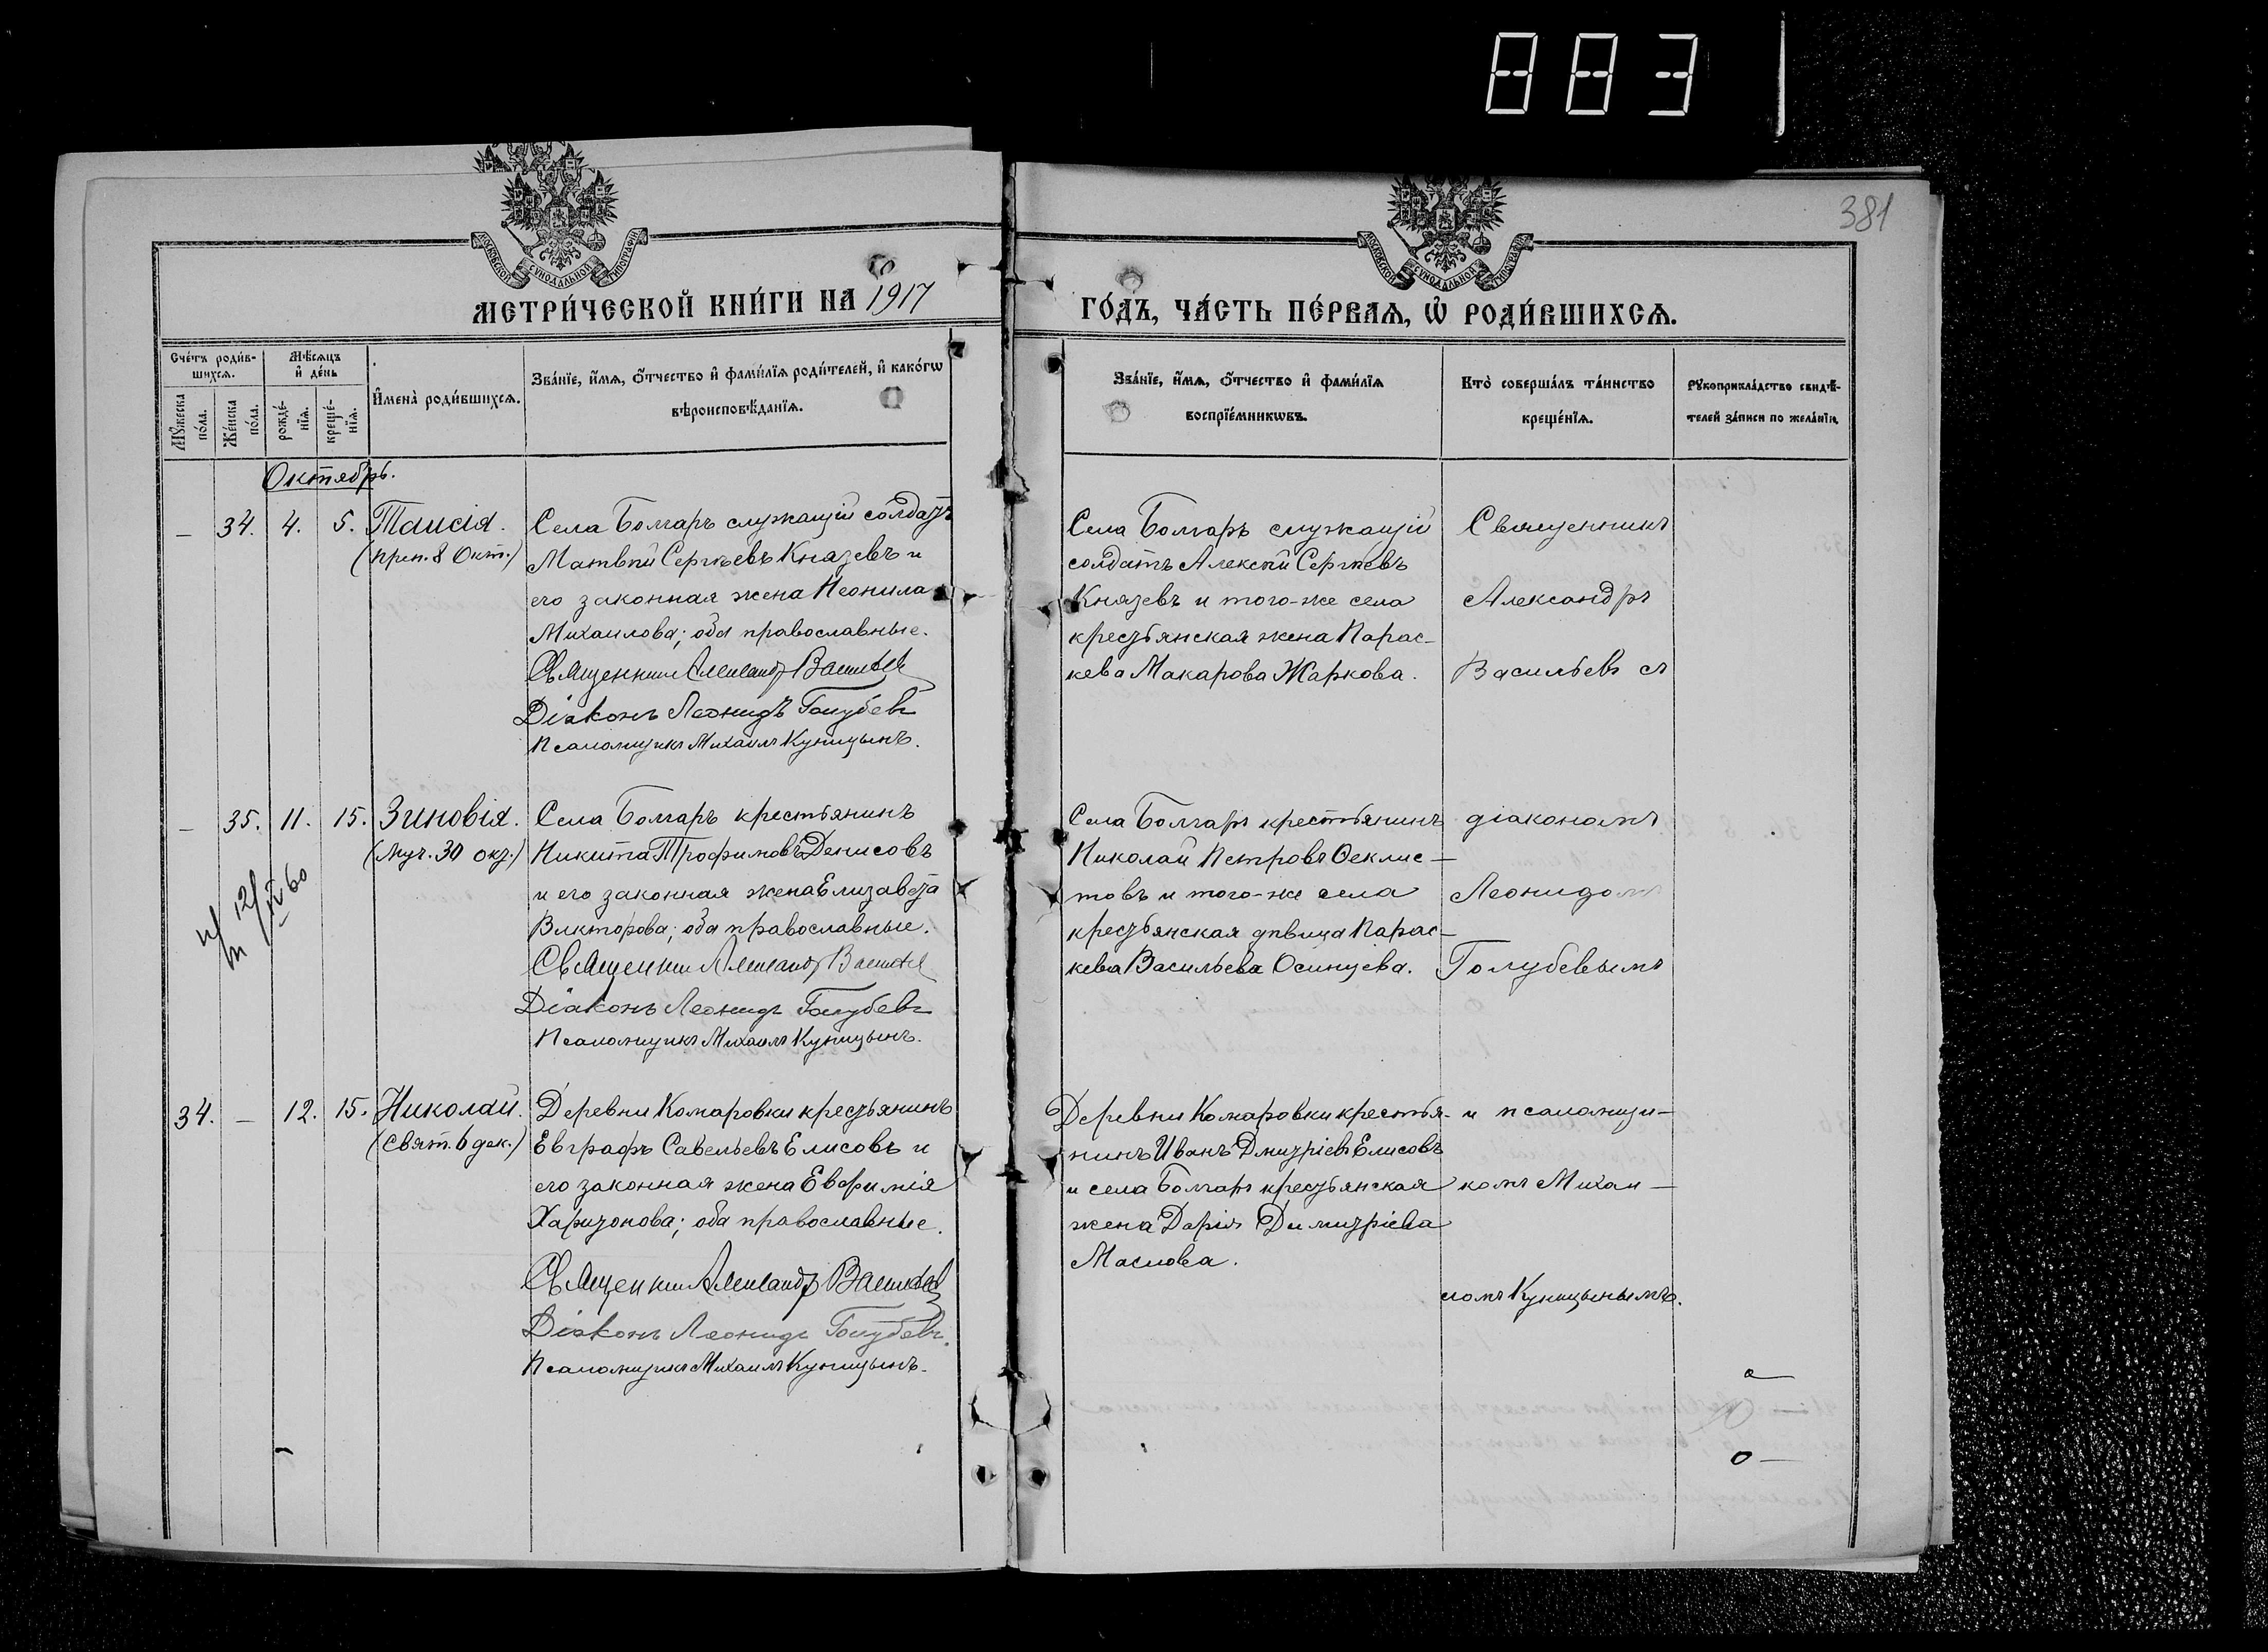 883
381
МОСКОВСКОЙ СУНОДАЛЬНОЙ ТИПОГРАФІИ
МОСКОВСКОЙ СУНОДАЛЬНОЙ ТИПОГРАФІИ
МЕТРИ́ЧЕСКОЙ КНИ́ГИ НА 1917
ГО́ДЪ, ЧА́СТЬ ПЕ́РВАѦ, Ѡ РОДИ́ВШИХСѦ.
Сче́тъ роди́в-
шихсѧ.
Мꙋ́жеска по́ла.
Же́нска по́ла.
Мѣ́сѧцъ
и де́нь
рожде́-
нїѧ.
креще́-
нїѧ.
Имена̀ роди́вшихсѧ.
Зва́нїе, и́мѧ, о́тчество и фами́лїѧ роди́телей, и како́гѡ
вѣроисповѣ́данїѧ.
Зва́нїе, и́мѧ, о́тчество и фами́лїѧ
воспрїе́мникѡвъ.
Кто̀ соверша́лъ та́инство
креще́нїѧ.
Рꙋкоприкла́дство свидѣ́-
телей за́писи по жела́нїю.
Октябрь.
— 34. 4. 5. Таисія.
(преп. 8 Окт.)
Села Болгаръ служащій солдатъ
Матвѣй Сергѣевъ Князевъ и
его законная жена Неонила
Михаилова; оба православные.
Священникъ Александръ Васильевъ
Діаконъ Леонидъ Голубевъ
Псаломщикъ Михаилъ Куницынъ.
Села Болгаръ служащій
солдатъ Алексѣй Сергѣевъ
Князевъ и того-же села
крестьянская жена Парас-
кева Макарова Жаркова.
Священникъ
Александръ
Васильевъ съ
— 35. 11. 15. Зиновія.
(муч. 30 окт.)
12/IX 60
Села Болгаръ крестьянинъ
Никита Трофимовъ Денисовъ
и его законная жена Елизавета
Викторова; оба православные.
Священникъ Александръ Васильевъ
Діаконъ Леонидъ Голубевъ
Псаломщикъ Михаилъ Куницынъ.
Села Болгаръ крестьянинъ
Николай Петровъ Ѳеклис-
товъ и того-же села
крестьянская дѣвица Парас-
кева Васильева Осинцева.
діакономъ
Леонидомъ
Голубевымъ
34. — 12. 15. Николай.
(Свят. 6 дек.)
Деревни Комаровки крестьянинъ
Евграфъ Савельевъ Елисовъ и
его законная жена Евфимія
Харитонова; оба православные.
Священникъ Александръ Васильевъ
Діаконъ Леонидъ Голубевъ.
Псаломщикъ Михаилъ Куницынъ.
Деревни Комаровки крестья-
нинъ Иванъ Дмитріевъ Елисовъ
и села Болгаръ крестьянская
жена Дарія Димитріева
Маслова.
и псаломщи-
комъ Михаи-
ломъ Куницынымъ.